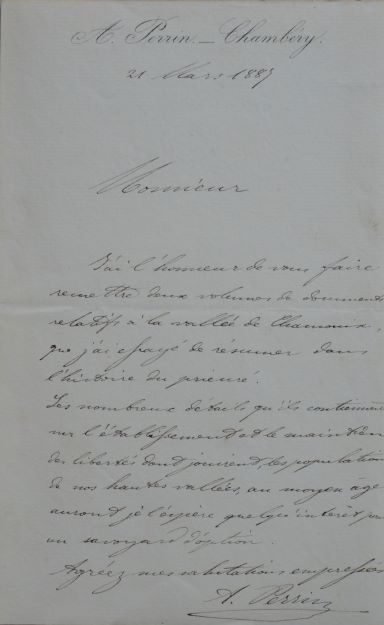 A. Perrin _ Chambéry.
21 Mars 1887
Monsieur
J'ai l'honneur de vous faire
remettre deux volumes de documents
relatifs à la vallée de Chamonix,
que j'ai essayé de résumer dans
l'histoire du prieuré.
Les nombreux détails qu'ils contiennent
sur l'établissement et le maintien
des libertés dont jouirent, les population
de nos hautes vallées, au moyen âge
auront je l'espère quelqu'intérêt pour
un savoyard d'option.
Agréez mes salutations empressées
A. Perrin